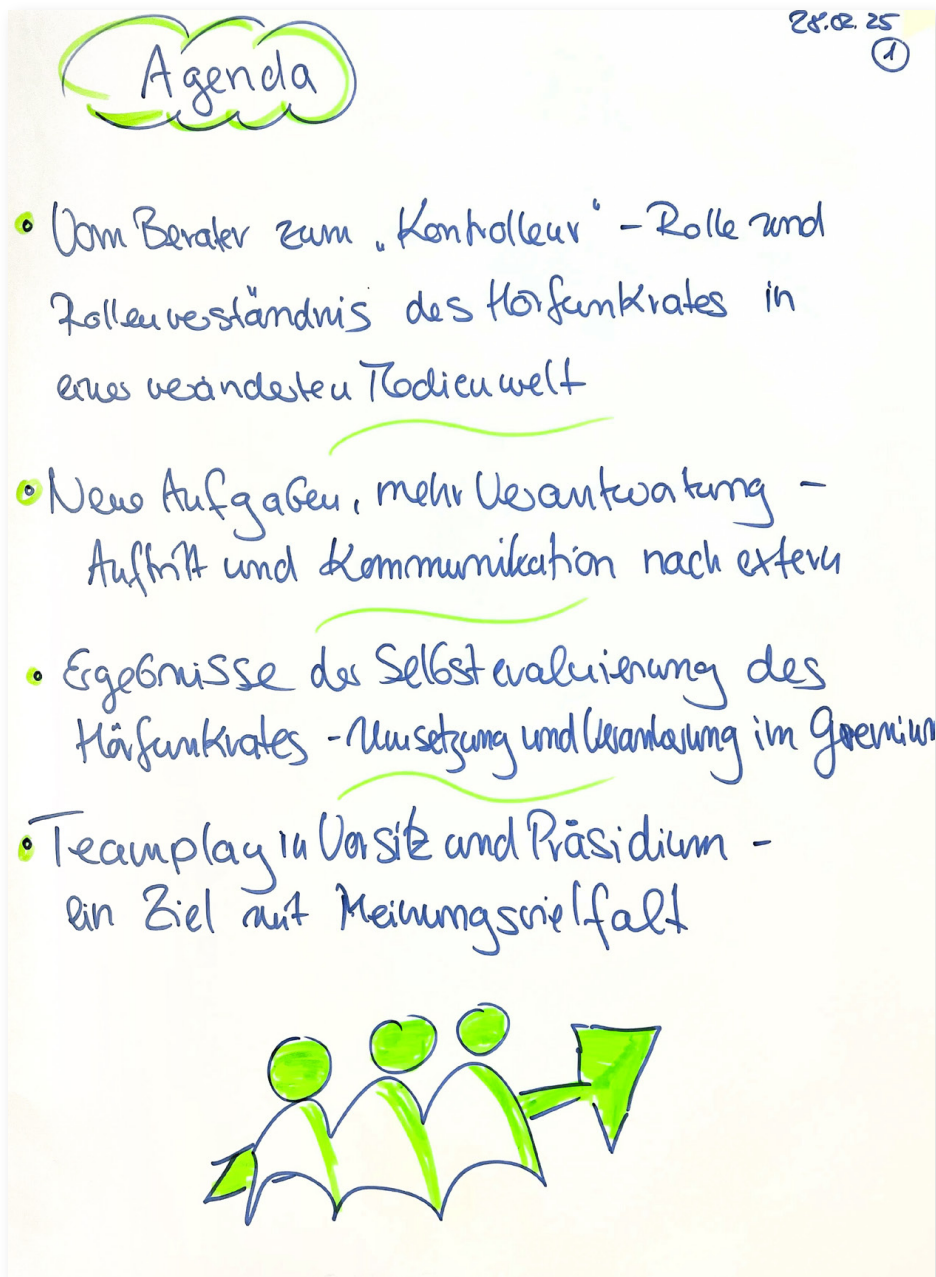 28.02.25
1
Agenda
Vom Berater zum „Kontrolleur“ – Rolle und
Rollenverständnis des Hörfunkrates in
einer veränderten Medienwelt
Neue Aufgaben, mehr Verantwortung –
Auftritt und Kommunikation nach extern
Ergebnisse der Selbstevaluierung des
Hörfunkrates - Umsetzung und im Gremium
Teamplay in Vorsitz und Präsidium -
ein Ziel mit Meinungsvielfalt